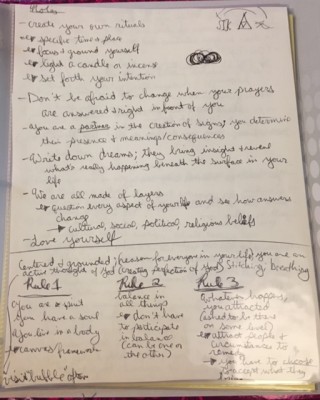 - create your own rituals
↳ specific time & place
↳ focus & ground yourself
↳ light a candle or incense
↳ set forth your intention
- Don't be afraid to change when your prayers
are answered & right in front of you
- you are a partner in the creation of signs; you determine
their presence & meanings/consequences
- Write down dreams; they bring insight & reveal
what's really happening beneath the surface in your
life
- We are all made of layers
↳ Question every aspect of your life and see how answers
change
↳ cultural, social, political, religious beliefs
- Love yourself
Centered & grounded; reason for everyone in your life; you are an
active thought of God (creating perfection of God) breathing
Rule 1
You are a spirit
you have a soul
you live in a body
↳ canvas/framework
visit "bubble" often
Rule 2
balance in
all things
↳ don't have
to participate
in balance
(can be one or
the other)
Rule 3
whatever happens
you attracted
(asked to be there
on some level)
↳ attract people &
circumstances for
reason
↳ you have to choose
accept what they